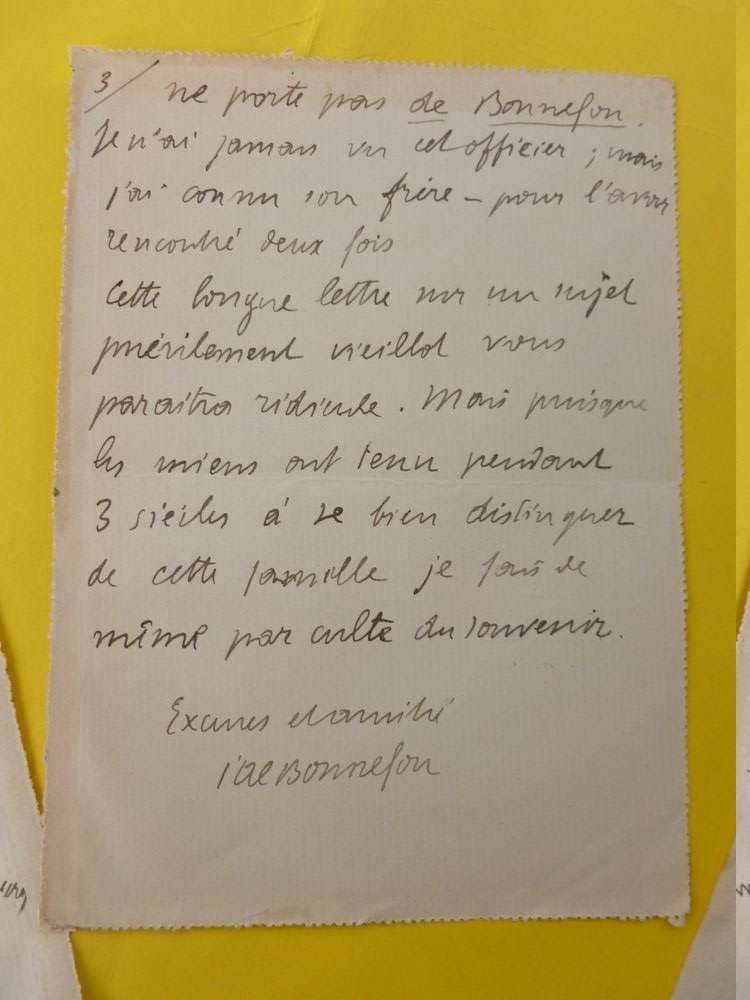 3/ ne porte pas de Bonnefon.
Je n'ai jamais vu cet officier ; mais
j'ai connu son frère - pour l'avoir
rencontré deux fois
Cette longue lettre sur un sujet
puérilement vieillot vous
paraitra ridicule. Mais puisque
les miens ont tenu pendant
3 siècles à se bien distinguer
de cette famille je fais de
même par culte du souvenir.
Excuses et amitié
J de Bonnefon